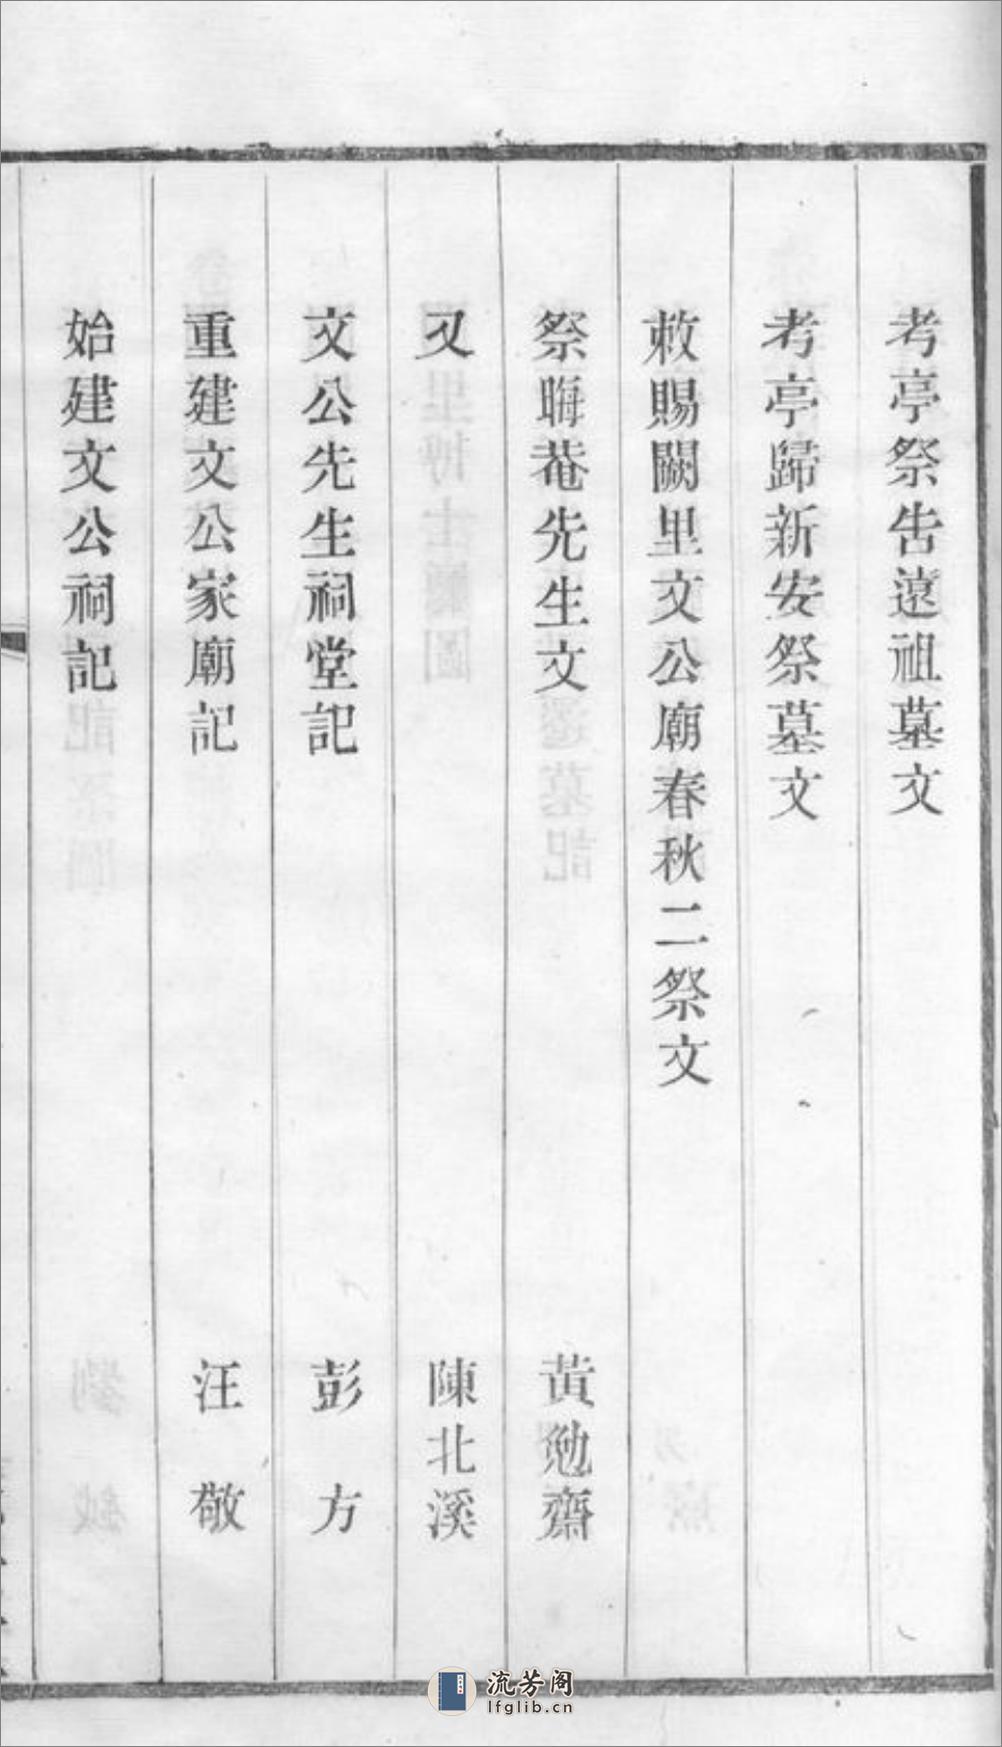 考亭祭告遠祖墓文
考亭歸新安祭墓文
敕賜闕里文公廟春秋二祭文
祭晦菴先生文 黃勉齋
又 陳北溪
文公先生祠堂記 彭方
重建文公家廟記 汪敬
始建文公祠記
流芳阁
lfglib.cn